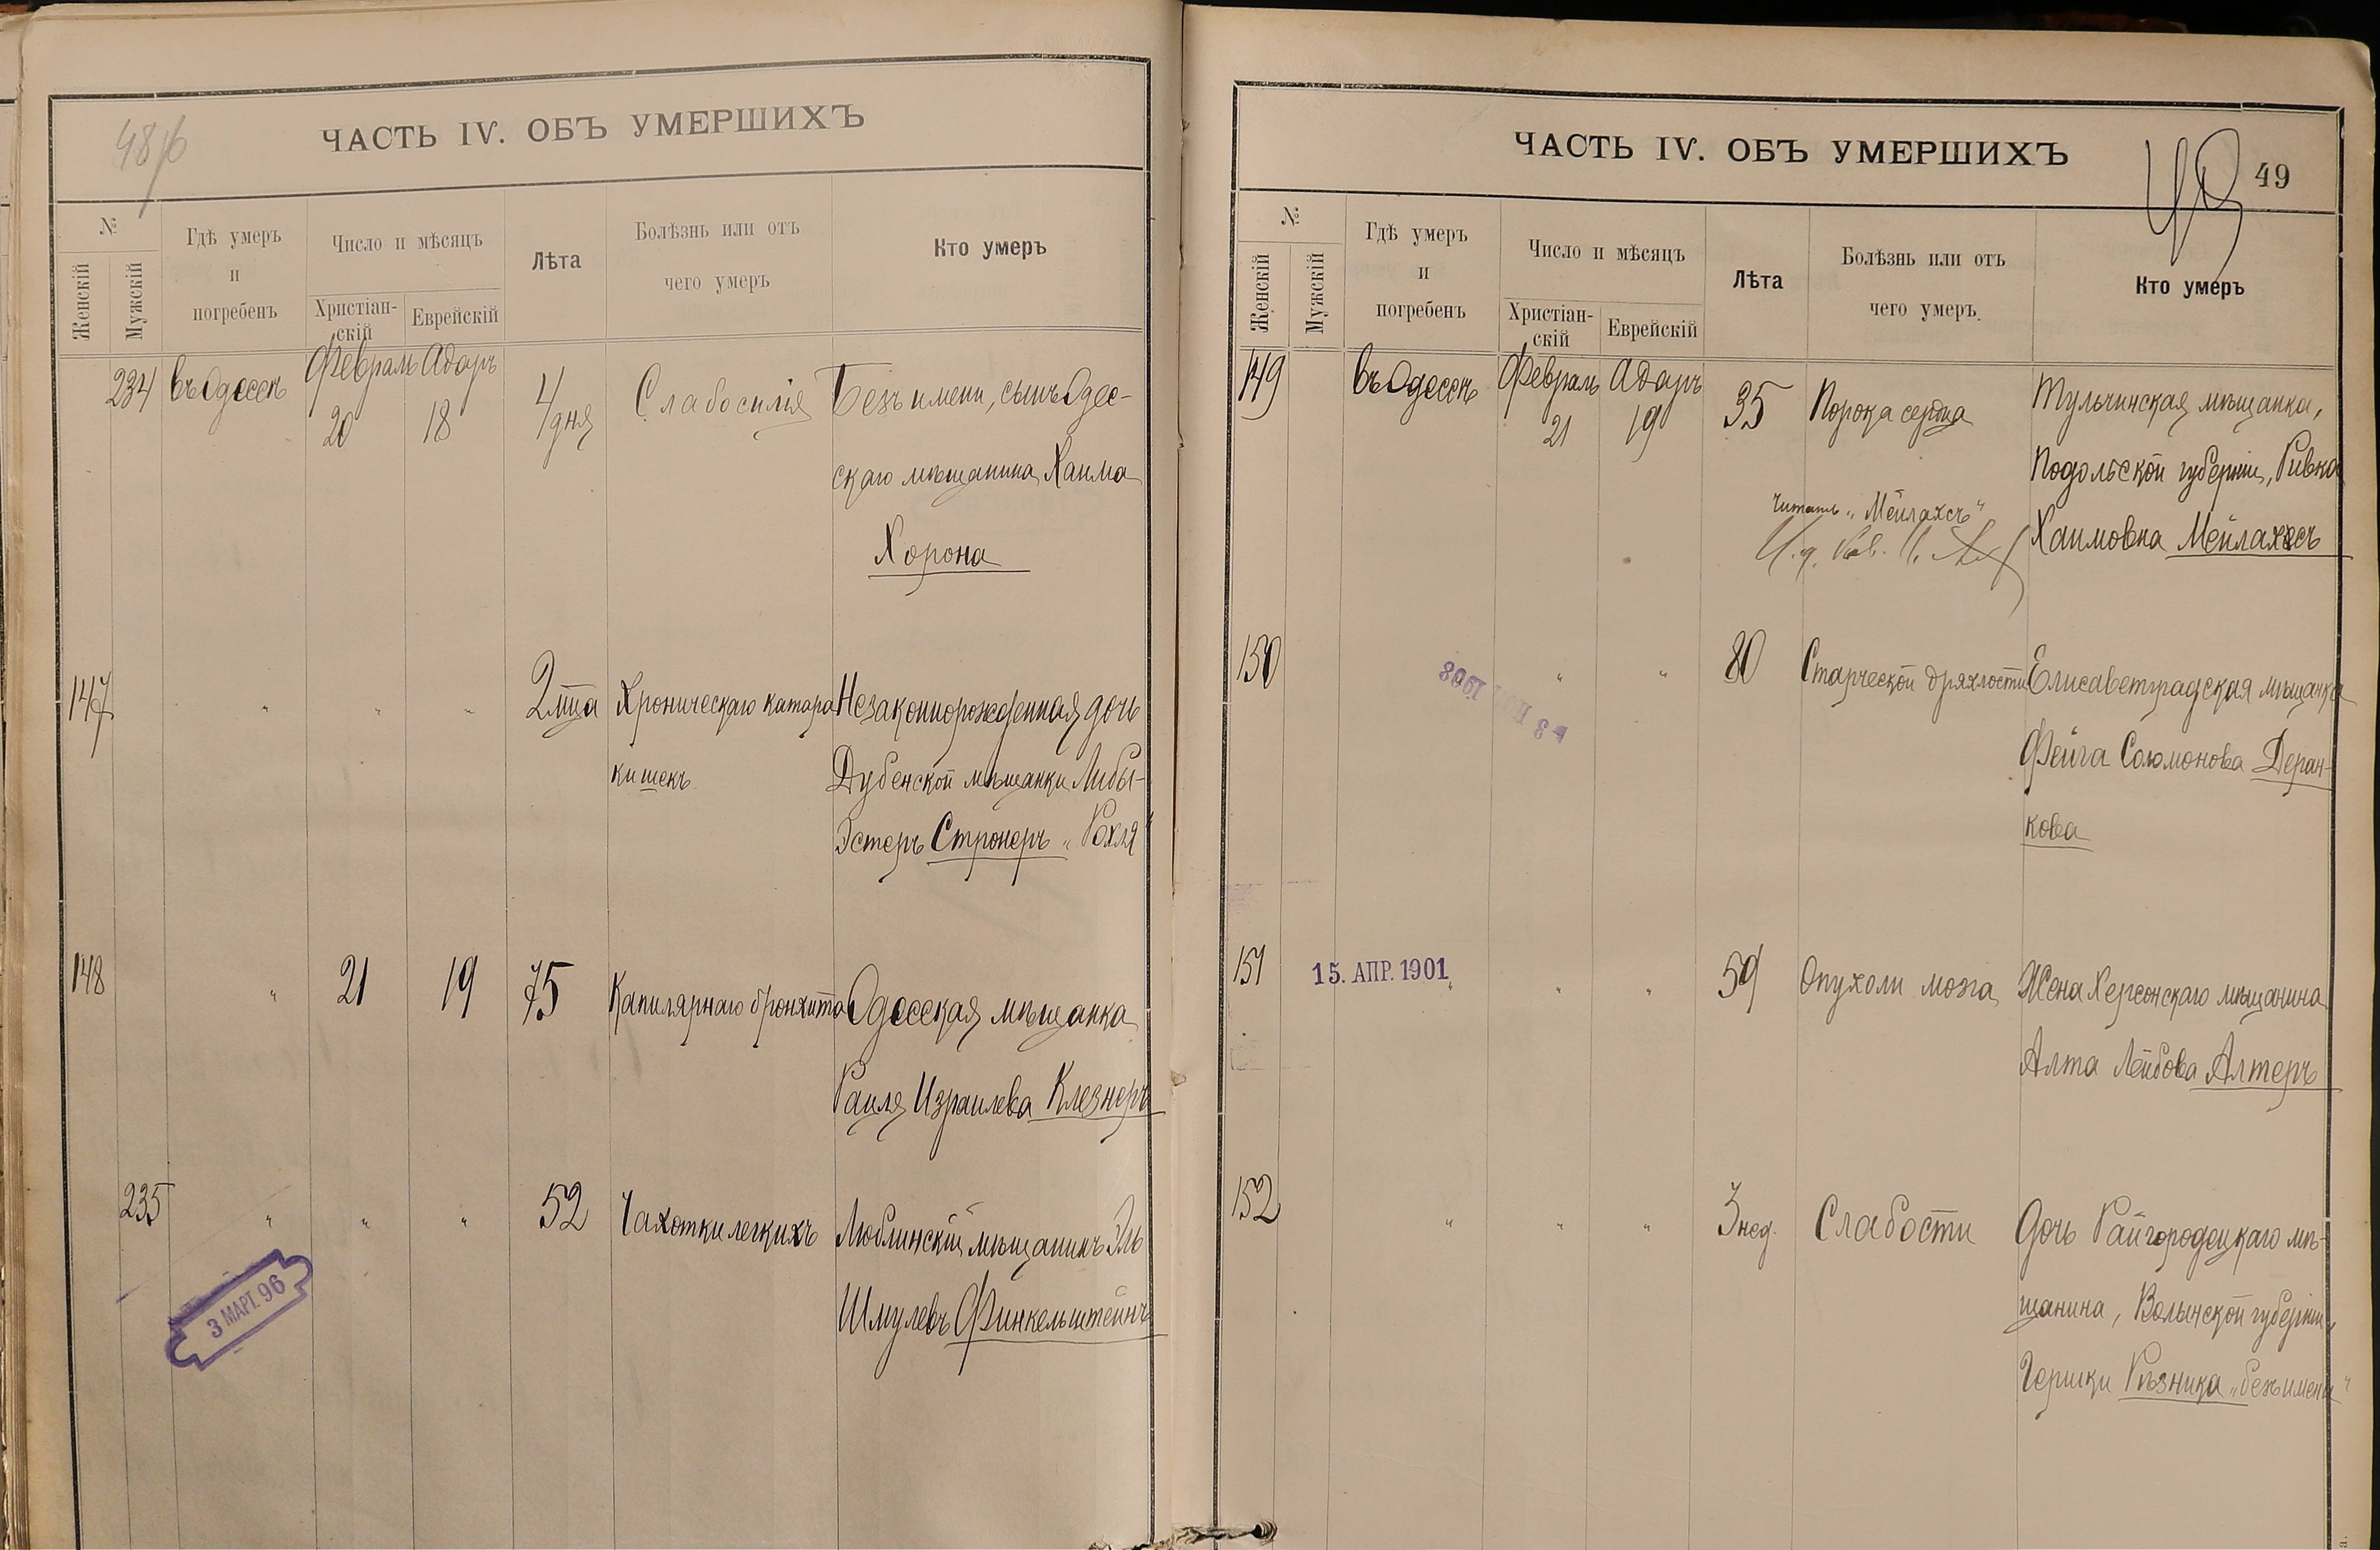 48/б
ЧАСТЬ IV. ОБЪ УМЕРШИХЪ
№
Женскій
Мужскій
Гдѣ умеръ
и
погребенъ
Число и мѣсяцъ
Христіан-
скій
Еврейскій
Лѣта
Болѣзнь или отъ
чего умеръ
Кто умеръ
234 въ Одессѣ Февраль 20 Адаръ 18 4 дня Слабосилія Безъ имени, сынъ Одес-
скаго мѣщанина Хаима
Хорона
147 " " " 2 мца Хроническаго катара Незаконнорожденная дочь
кишекъ Дубенской мѣщанки Либы-
Эстеръ Стронеръ „Рохля"
148 " 21 19 75 Капилярнаго бронхита Одесская мѣщанка
Раиля Израилева Клезнеръ
235 " " " 52 Чахотки легкихъ Люблинскій мѣщанинъ Эль
Шмулевъ Финкельштейнъ
3 МАРТ. 96
ЧАСТЬ IV. ОБЪ УМЕРШИХЪ
49
№
Женскій
Мужскій
Гдѣ умеръ
и
погребенъ
Число и мѣсяцъ
Христіан-
скій
Еврейскій
Лѣта
Болѣзнь или отъ
чего умеръ
Кто умеръ
149 въ Одессѣ Февраль 21 Адаръ 19 35 Порока сердца Тульчинская мѣщанка,
Подольской губерніи, Ривка
Хаимовна Мейлахсъ
Читать „Мейлахсъ"
И. д. Рав.
150 " " 80 Старческой дряхлости Елисаветградская мѣщанка
Фейга Соломонова Деран-
кова
1908
151 15. АПР. 1901 " " " 59 Опухоли мозга Жена Херсонскаго мѣщанина
Алта Лейбова Алтеръ
152 " " " 3 нед. Слабости Дочь Райгородецкаго мѣ-
щанина, Волынской губерніи
Гершки Рѣзника „безъ имени"